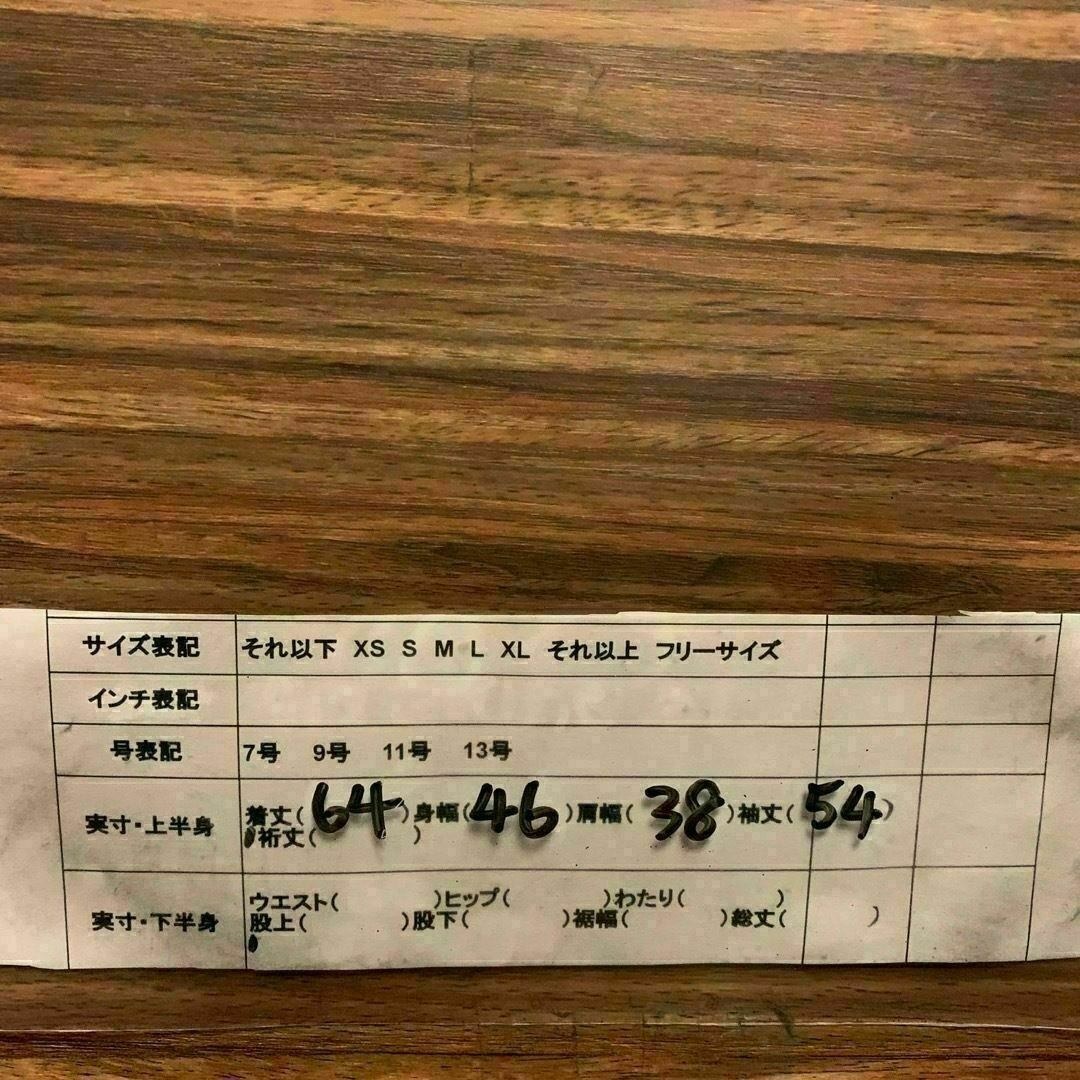 サイズ表記 それ以下 XS S M L XL それ以上 フリーサイズ
インチ表記
号表記 7号 9号 11号 13号
実寸・上半身 着丈(64)身幅(46)肩幅(38)袖丈(54)
裄丈( )
実寸・下半身 ウエスト( )ヒップ( )わたり( )
股上( )股下( )裾幅( )総丈( )